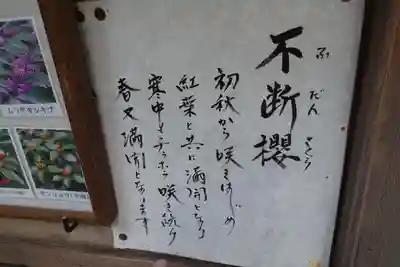 不断櫻
ふだんざくら
初秋から咲きはじめ
紅葉と共に満開となり
寒中もチラホラ咲き続け
春又満開となります
ムラサキシキブ